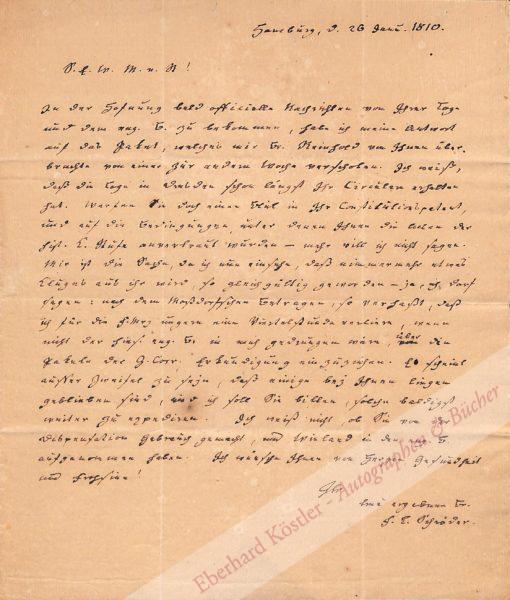 Hamburg, d. 26 Janr. 1810.
S. E. W. M. u. Br!
In der Hofnung bald officielle Nachrichten von Ihrer Loge
und dem eng. B. zu bekommen, habe ich meine Antwort
auf das Paket, welches mir Br. Reinhold von Ihnen über-
brachte von einer zur andern Woche verschoben. Ich weiß,
daß die Loge in Dresden schon längst Ihr Circulere erhalten
hat. Werfen Sie doch einen Blick in Ihr Constitutionspatent,
und auf die Bedingungen, unter denen Ihnen die Acten der
hist. K. Stufe anvertraut wurden — mehr will ich nicht sagen.
Mir ist die Sache, da ich nun einsehe, daß nimmermehr etwas
Kluges aus ihr wird, so gleichgültig geworden — ja, ich darf
sagen: nach dem Moßdorfschen Betragen, so verhaßt, daß
ich für die ungern eine Viertelstunde verliere, wenn
nicht der hies. eng. B. in mich gedrungen wäre, über die
Pakete der G. Corr. Erkundigung einzuziehen. Es scheint
ausser Zweifel zu seyn, daß einige bey Ihnen liegen
geblieben sind, und ich soll Sie bitten, solche baldigst
weiter zu expediren. Ich weiß nicht, ob Sie von der
Dispensation Gebrauch gemacht, und Wieland in den B.
aufgenommen haben. Ich wünsche Ihnen von Herzen Gesundheit
und Frohsinn!
Ihr
treu ergebener Br.
F. L. Schröder.
Eberhard Köstler - Autographen & Bücher